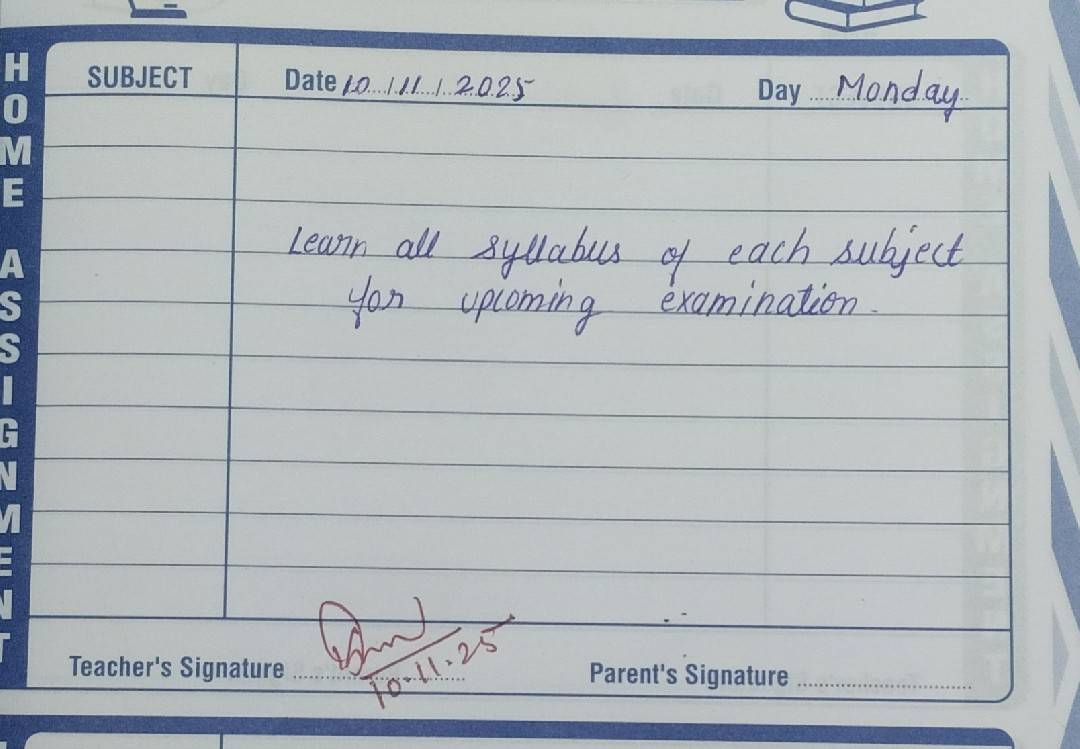 HOME ASSIGNMENT
SUBJECT Date 10 / 11 / 2025 Day Monday
Learn all syllabus of each subject
for upcoming examination.
Teacher's Signature Parent's Signature
10-11-25